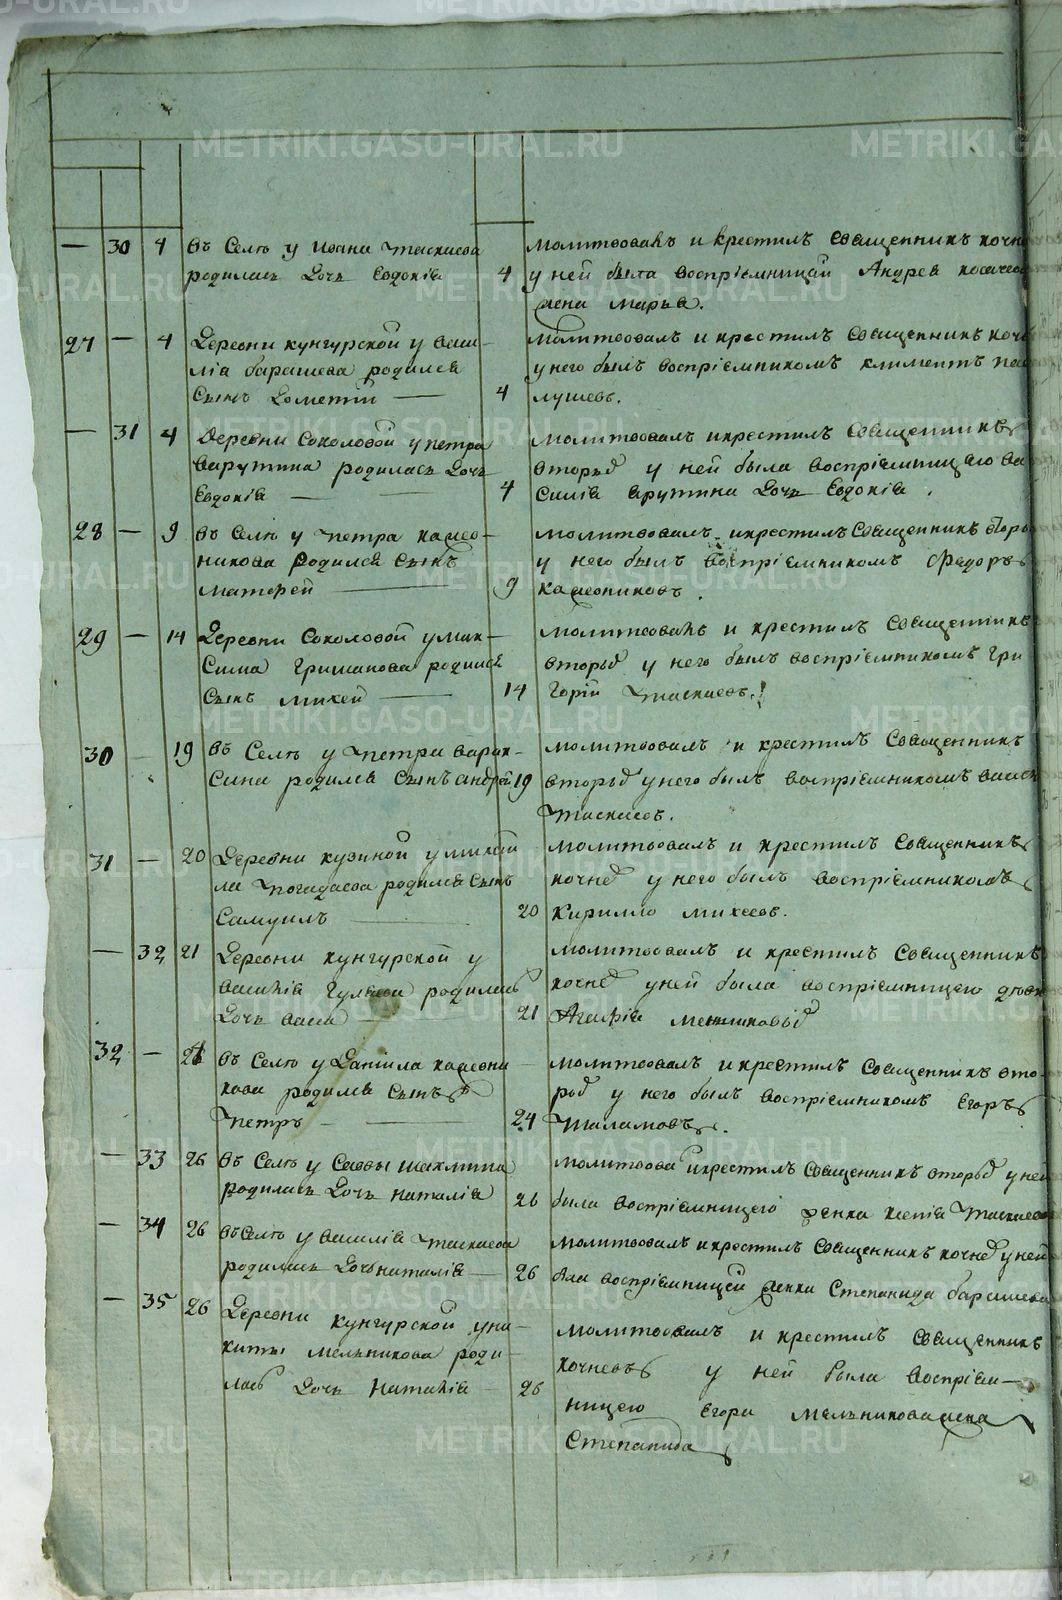 — 30 4 въ Селѣ у Ивана Таскаева
родилась дочь Евдокія
4
молитвовалъ и крестилъ священникъ
у ней была воспріемницой Андрея
жена Марья.
27 — 4 Деревни кунгурской у Васи-
лія барашева родился
сынъ —
4
молитвовалъ и крестилъ священникъ
у него былъ воспріемникомъ климентъ
лушевъ.
— 31 4 Деревни Соколовой у петра
варутина родилась дочь
Евдокія —
4
молитвовалъ и крестилъ священникъ
вторыб у ней была воспріемницею ва
силія дочь Евдокія.
28 — 9 въ Селѣ у петра
никова родился сынъ
матфей —
9
молитвовалъ и крестилъ священникъ
у него былъ воспріемникомъ Федоръ
29 — 14 Деревни Соколовой у мак-
сима Гришанова родился
сынъ михей —
14
молитвовалъ и крестилъ священникъ
вторыб у него былъ воспріемникомъ Гри
горій Таскаевъ.
30 — 19 въ Селѣ у петра варак-
сина родился сынъ андрей
19
молитвовалъ и крестилъ священникъ
вторыб у него былъ воспріемникомъ
Таскаевъ.
31 — 20 Деревни кузиной у михай
ла погадаева родился сынъ
Самуилъ —
20
молитвовалъ и крестилъ священникъ
кочнев у него былъ воспріемникомъ
Кирилло михеевъ.
— 32 21 Деревни кунгурской у
василія Гуляева родилась
дочь васса
21
молитвовалъ и крестилъ священникъ
кочнев у ней была воспріемницею
Агафія
32 — 24 въ Селѣ у Даніила
кова родился сынъ
петръ —
24
молитвовалъ и крестилъ священникъ вто-
рыб у него былъ воспріемникомъ Егоръ
Таламовъ.
— 33 26 въ Селѣ у Саввы шахмина
родилась дочь наталія
26
молитвова и крестилъ священникъ вторыб у ней
была воспріемницею женка ксенія
— 34 26 въ Селѣ у василія Таскаева
родилась дочь наталія —
26
молитвовалъ и крестилъ священникъ кочнев у ней
бла воспріемницей женка Степанида барашева
— 35 26 Деревни кунгурской у ни-
киты мельникова роди-
лась дочь наталія —
26
молитвовалъ и крестилъ священникъ
кочневъ у ней была воспріем-
ницею Егора мельникова жена
Степанида
METRIKI.GASO-URAL.RU